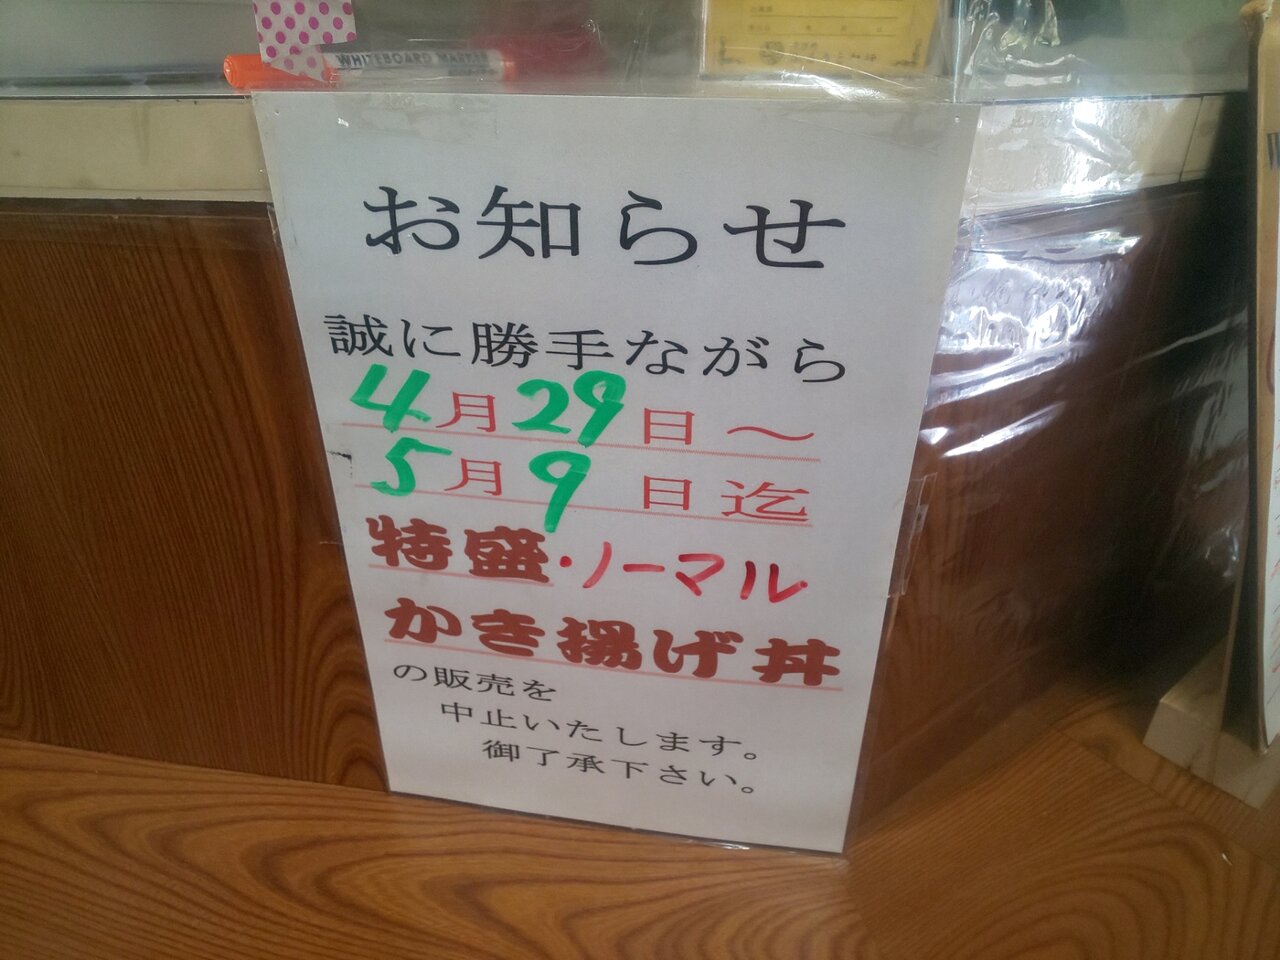 WHITEBOARD MARKER
お知らせ
誠に勝手ながら
4月29日～
5月9日迄
特盛・ノーマル
かき揚げ丼
の販売を
中止いたします。
御了承下さい。